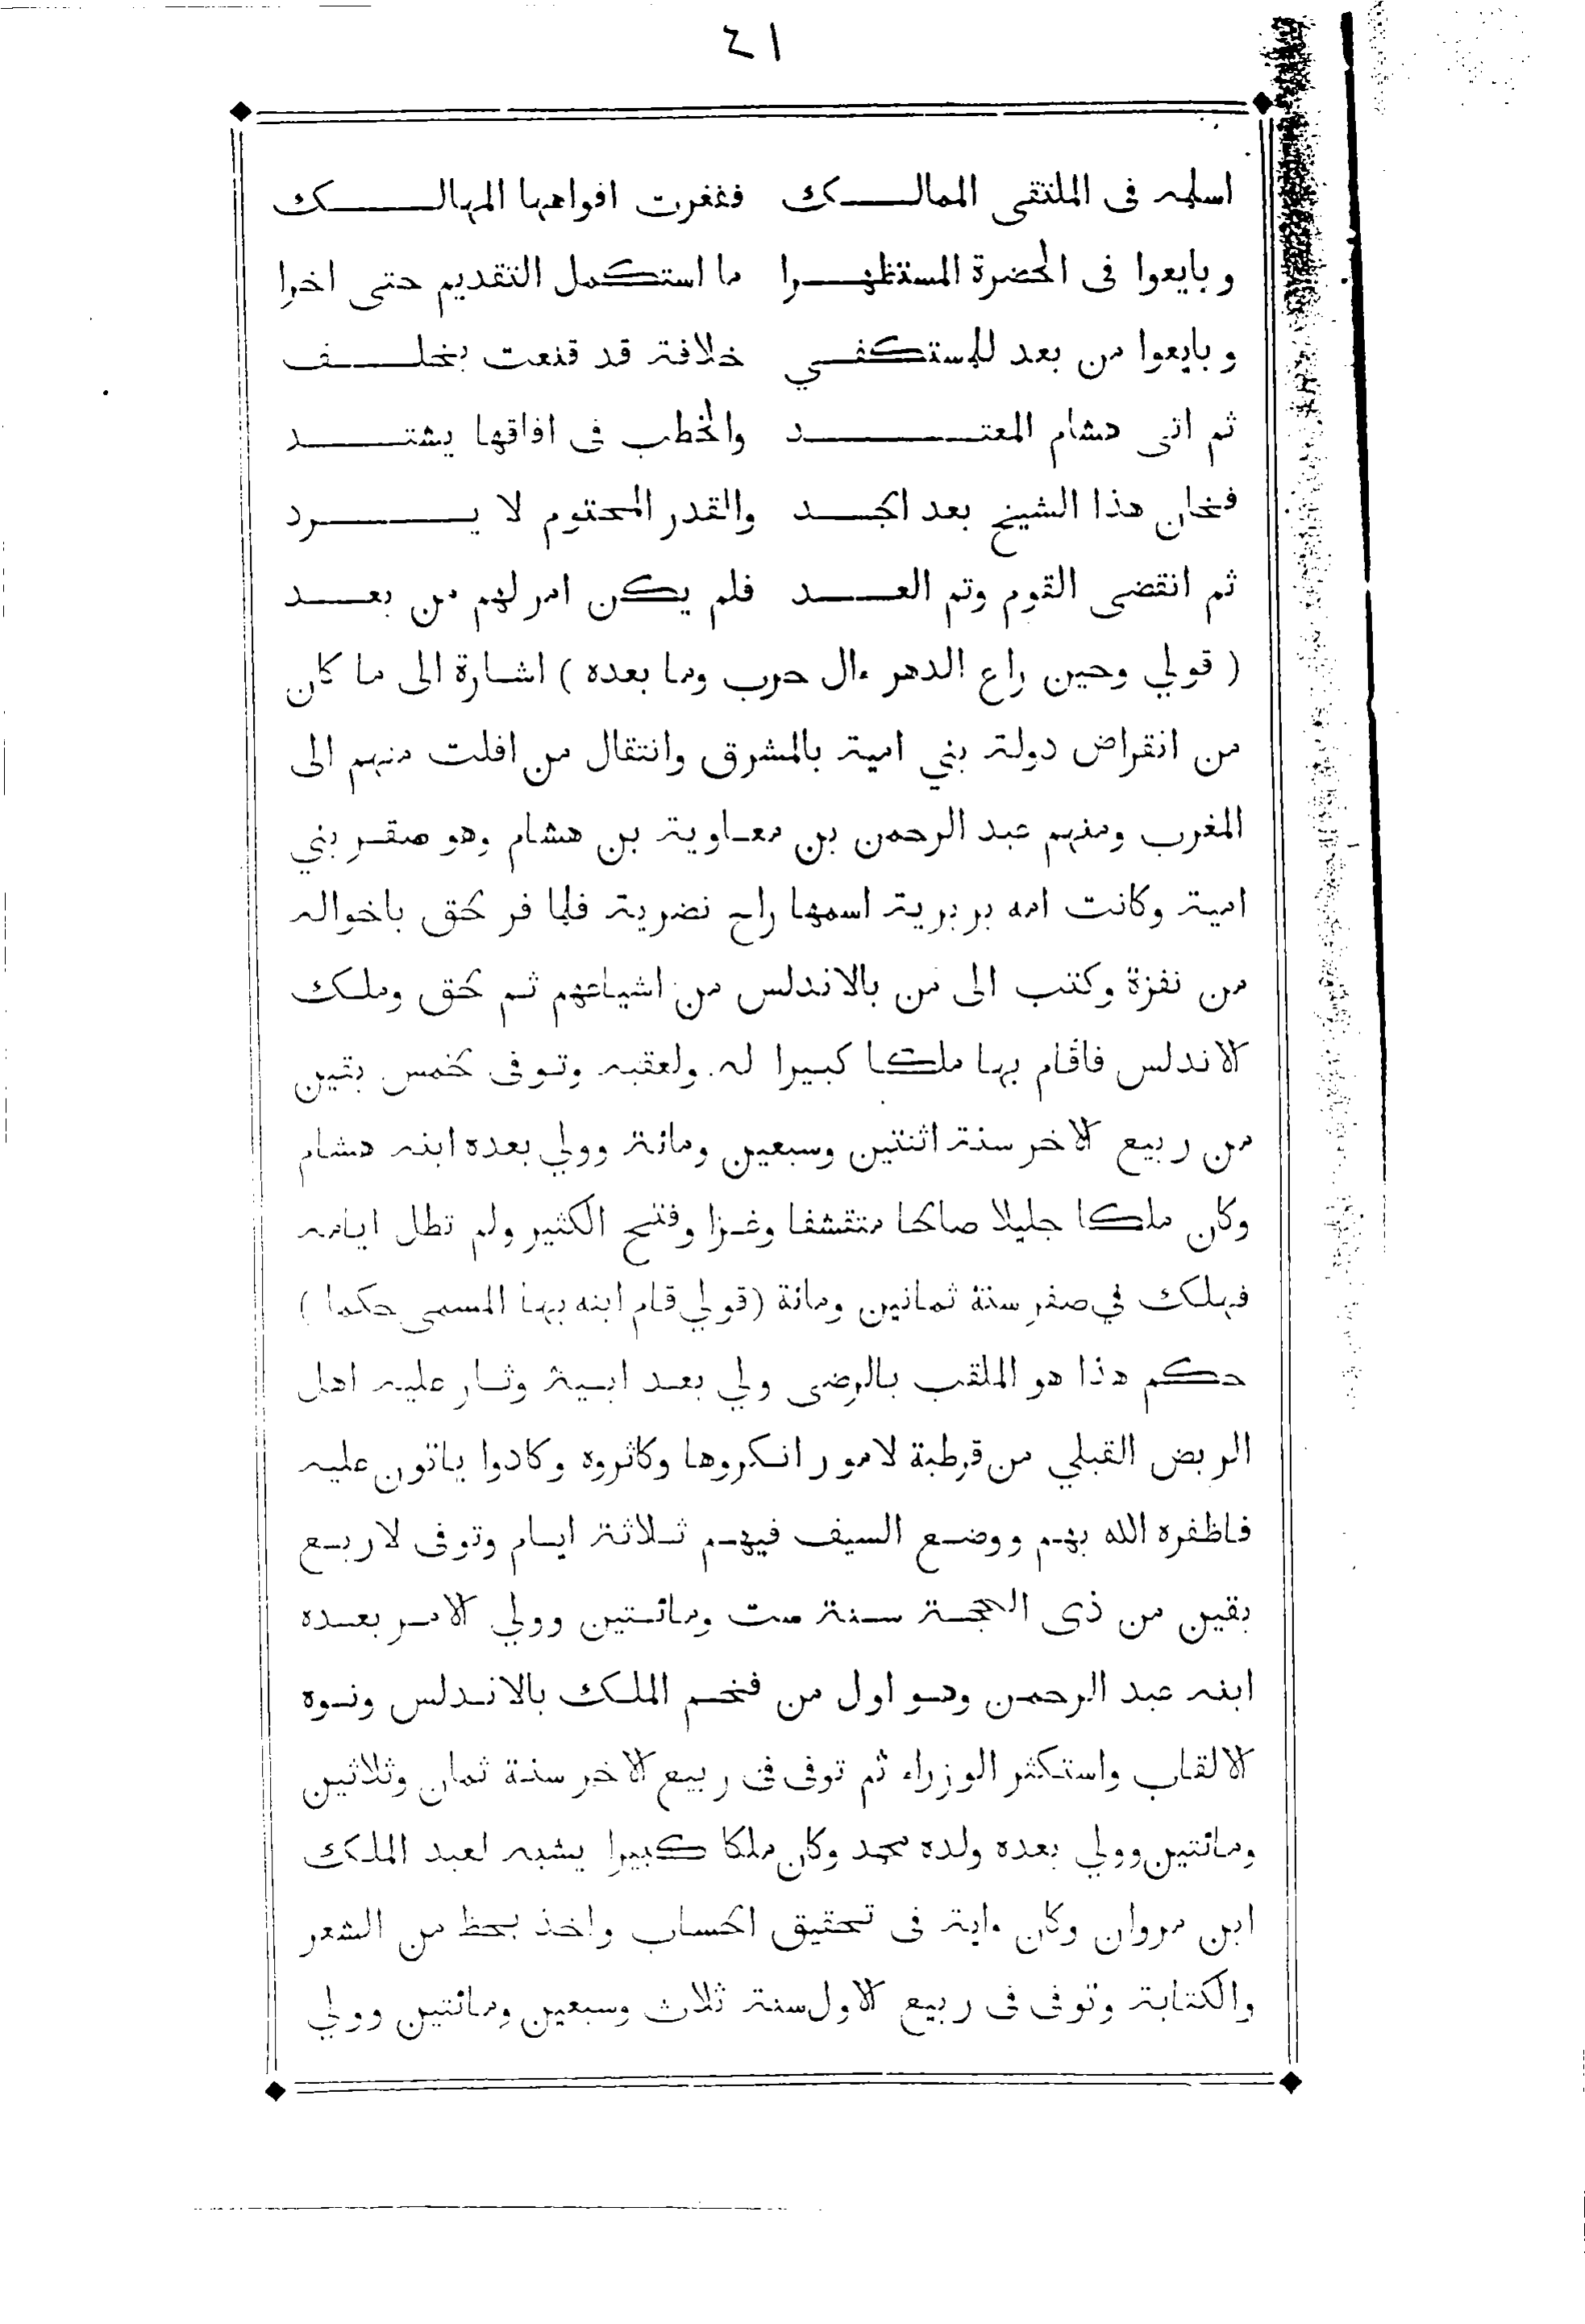 ٤١
اسلمه فى الملتقى الممالك فغفرت افواهها المهالك
وبايعوا فى الحضرة المستظهرا ما استكمل التقديم حتى اخرا
وبايعوا من بعد للمستكفي خلافة قد قنعت بخلف
ثم اتى هشام المعتد والخطب فى افاقها يشتد
فخان هذا الشيخ بعد الجد والقدر المحتوم لا يرد
ثم انقضى القوم وتم العد فلم يكن امر لهم من بعد
( قولي وحين راع الدهر ءال حرب وما بعده ) اشارة الى ما كان
من انقراض دولة بني امية بالمشرق وانتقال من افلت منهم الى
المغرب ومنهم عبد الرحمن بن معاوية بن هشام وهو صقر بني
امية وكانت امه بربرية اسمها راح نضرية فلما فر لحق باخواله
من نفزة وكتب الى من بالاندلس من اشياعهم ثم لحق وملك
الاندلس فاقام بها ملكا كبيرا له ولعقبه وتوفى لخمس بقين
من ربيع الاخر سنة اثنتين وسبعين ومائة وولي بعده ابنه هشام
وكان ملكا جليلا صالحا متقشفا وغزا وفتح الكثير ولم تطل ايامه
فهلك في صفر سنة ثمانين ومائة (قولي قام ابنه بها المسمى حكما )
حكم هذا هو الملقب بالرضى ولي بعد ابية وثار عليه اهل
الربض القبلي من قرطبة لامور انكروها وكاثروه وكادوا ياتون عليه
فاظفره الله بهم ووضع السيف فيهم ثلاثة ايام وتوفى لاربع
بقين من ذى الحجة سنة ست ومائتين وولي الامر بعده
ابنه عبد الرحمن وهو اول من فخم الملك بالاندلس ونوه
الالقاب واستكثر الوزراء ثم توفى فى ربيع الاخر سنة ثمان وثلاثين
ومائتين وولي بعده ولده محمد وكان ملكا كبيرا يشبه لعبد الملك
ابن مروان وكان ءاية فى تحقيق الحساب واخذ بحظ من الشعر
والكتابة وتوفى فى ربيع الاول سنة ثلاث وسبعين ومائتين وولي